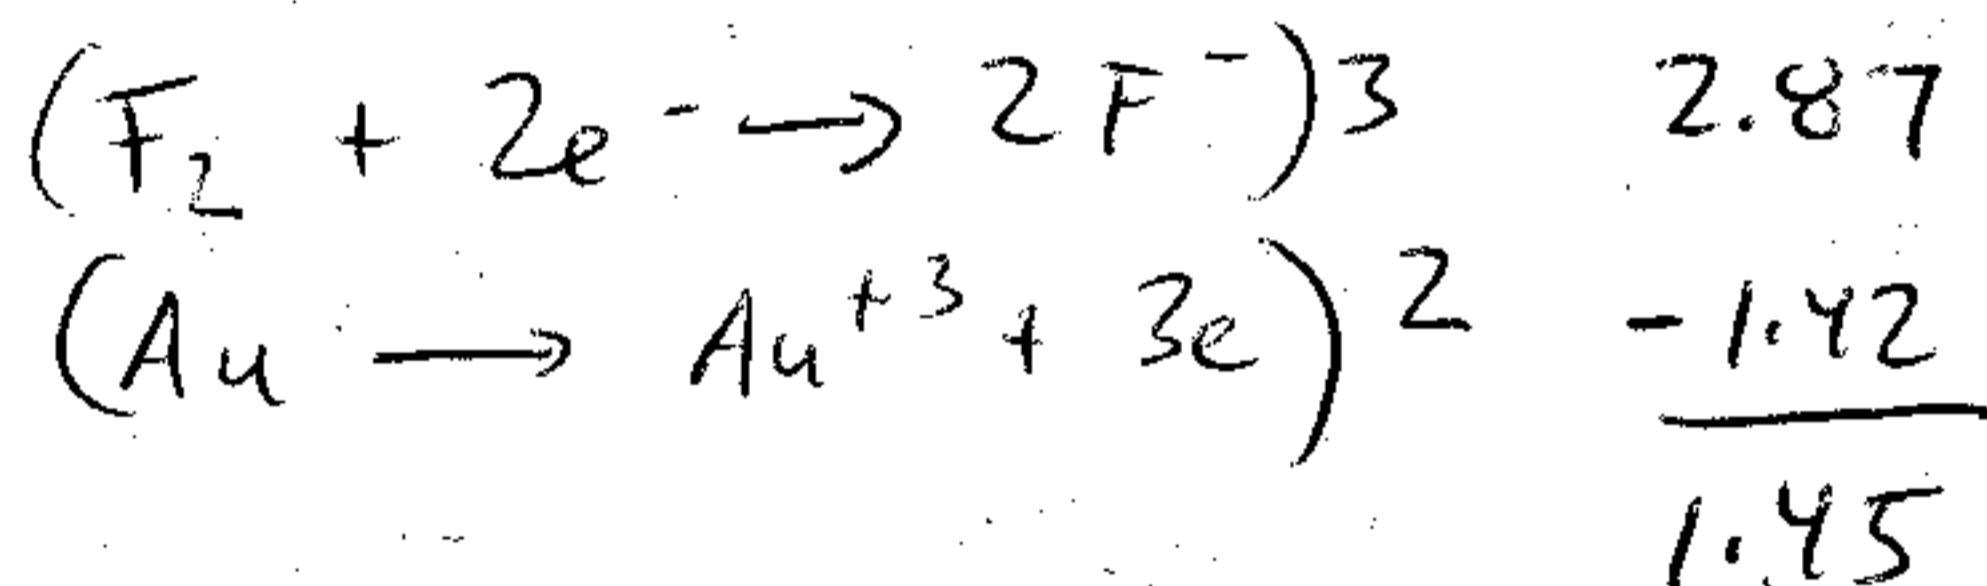 (F₂ + 2e⁻ → 2F⁻)3 2.87
(Au → Au⁺³ + 3e)2 -1.42
1.45